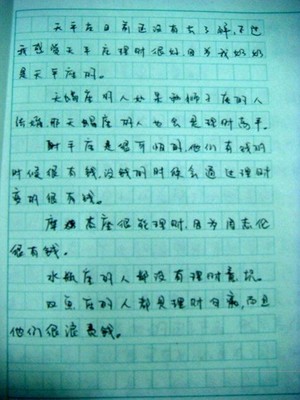 天平座目前还没有去了解,不过
我感觉天平座理财很好,因为我奶奶
是天平座的。
天蝎座的人如果和狮子座的人
结婚,那天蝎座的人也会是理财高手。
射手座是很有钱的,他们有钱的
时候很有钱,没钱的时候会通过理财
变的很有钱。
摩羯座很能理财,因为周杰伦
很有钱。
水瓶座的人都没有理财意识。
双鱼座的人都是理财白痴,而且
他们很浪费钱。